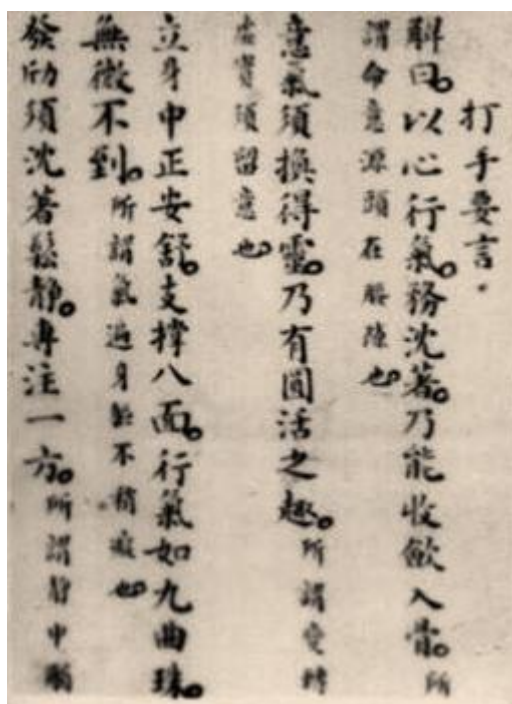 打手要言。
解曰。以心行氣。務沈著。乃能收斂入骨。所
謂命意源頭在腰隙也。
意氣須換得靈。乃有圓活之趣。所謂變轉
虛實須留意也。
立身中正安舒。支撐八面。行氣如九曲珠。
無微不到。所謂氣遍身軀不稍痴也。
發劤須沈著鬆靜。專注一方。所謂靜中觸